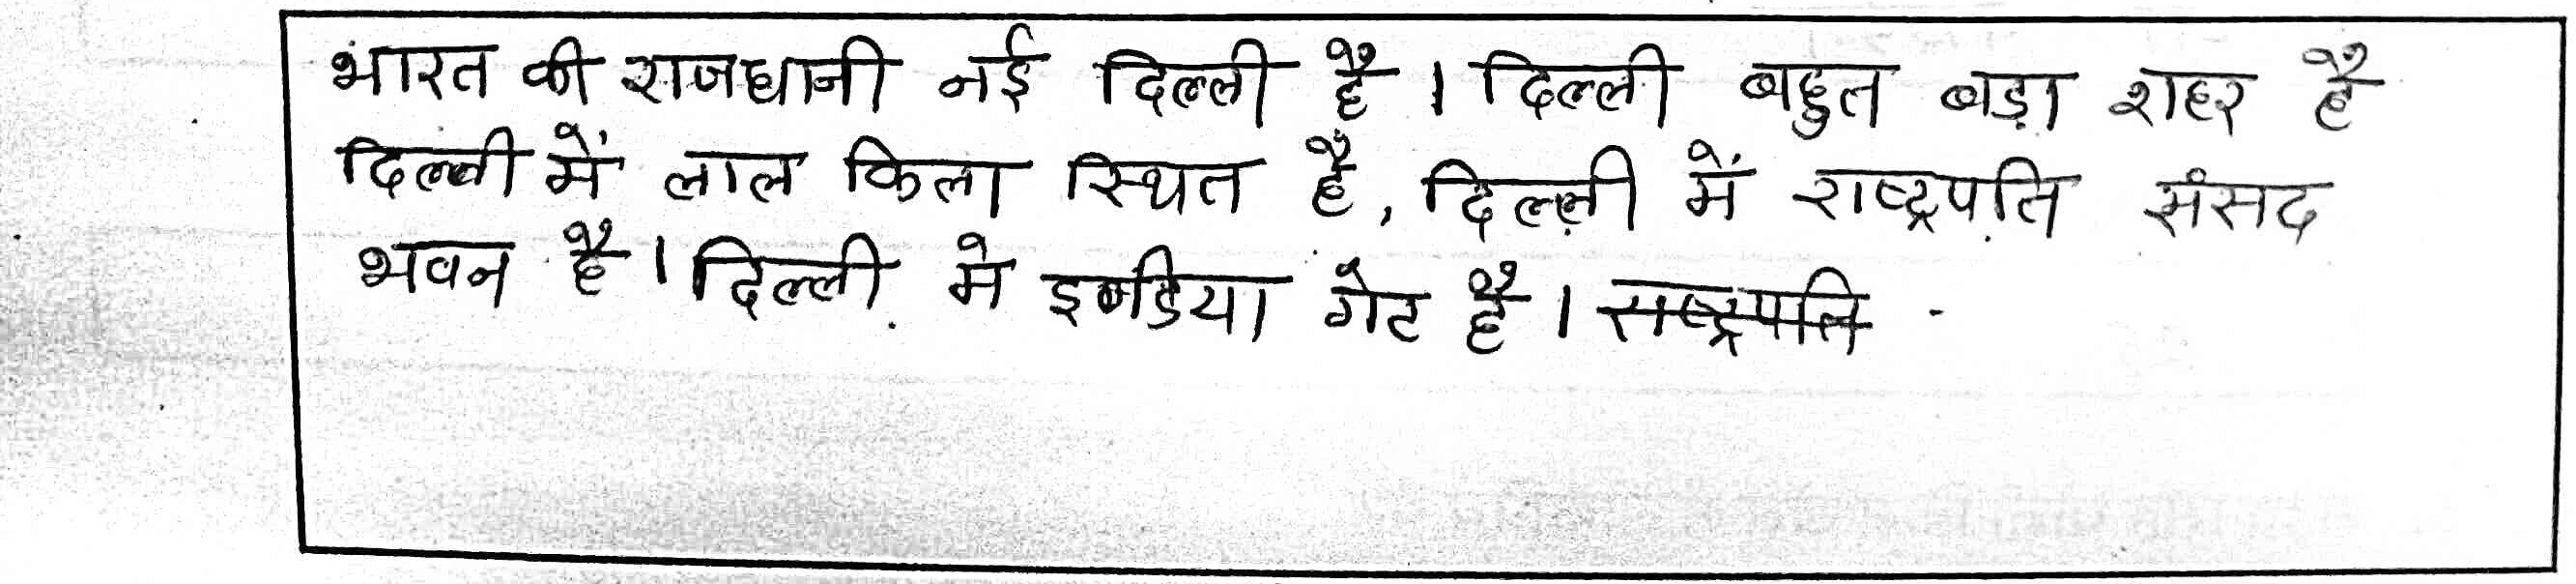 भारत की राजधानी नई दिल्ली है। दिल्ली बहुत बड़ा शहर है
दिल्ली में लाल किला स्थित है, दिल्ली में राष्ट्रपति संसद
भवन है। दिल्ली मे इण्डिया गेट है। राष्ट्रपति